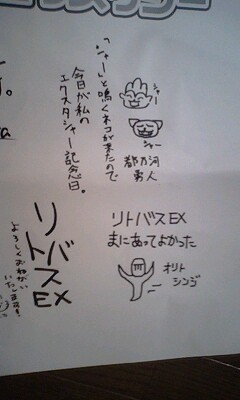 「シャーッ」と鳴くネコが来たので
今日が私の
エクスタシャー記念日。
シャー
シャー
都乃河
勇人
リトバスEX
まにあってよかった
オリト
シンジ
リトバス
EX
よろしくおねがい
いたします!